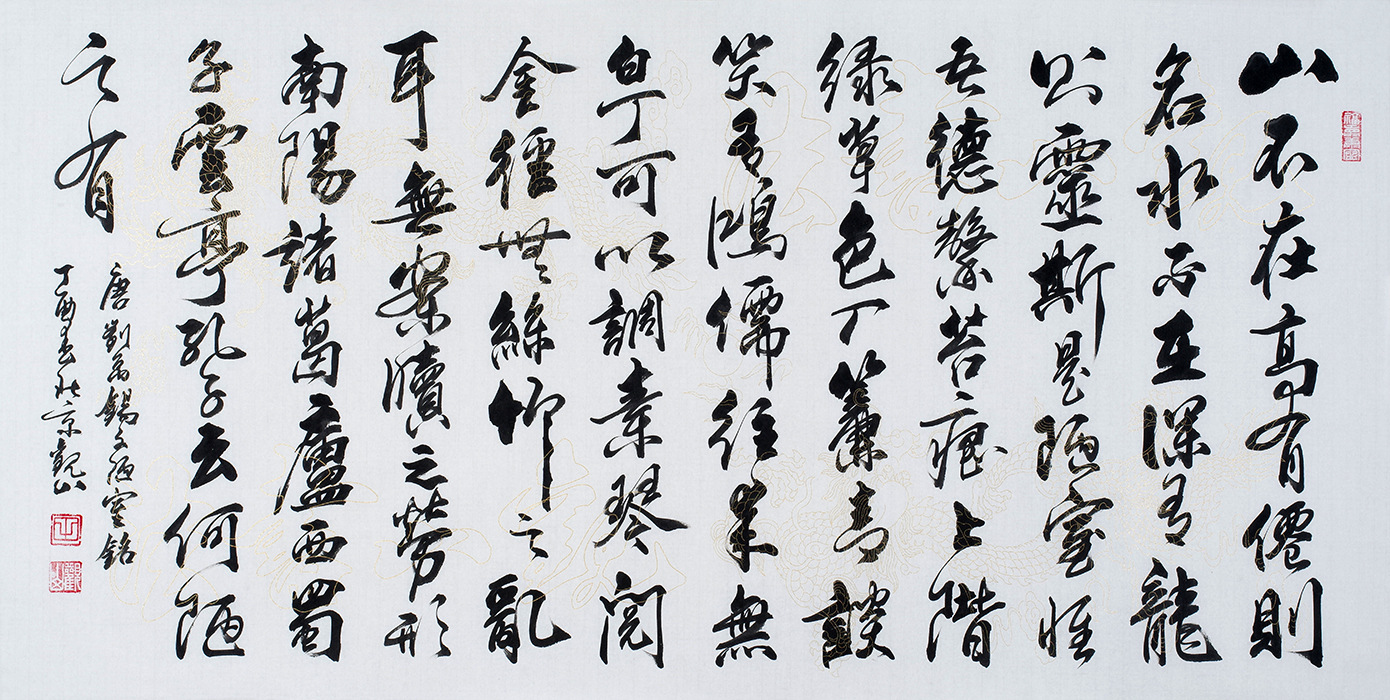 山不在高有僊則
名水不在深有龍
則靈斯是陋室惟
吾德馨苔痕上階
綠草色入簾青談
笑有鴻儒往來無
白丁可以調素琴閱
金經無絲竹之亂
耳無案牘之勞形
南陽諸葛廬西蜀
子雲亭孔子云何陋
之有
唐劉禹錫文陋室銘
丁酉書北京觀山